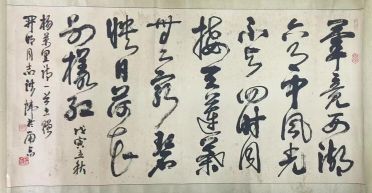 畢竟西湖
六月中風光
不与四时同
接天蓮葉
無窮碧
映日荷花
别樣红 戊寅秋
楊萬里詩一首